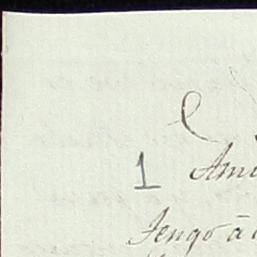 1 Ami
Tengo â